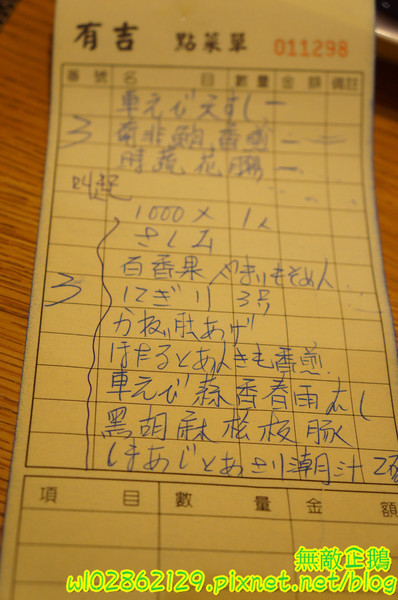 有吉 點菜單 011298
番號 名目 數量 金額 備註
車えび天すし 一
3 南非鮑香煎 一
時蔬花腸 一
叫起
1000 × 1人
さしみ
百香果 やまいもそめん
3 にぎり 3号
ほたるとあんきも香煎
車えび蒜香春雨むし
黑胡麻松板豚
しまあじとあさり潮汁
項目 數量 金額
無敵企鵝
w102862129.pixnet.net/blog